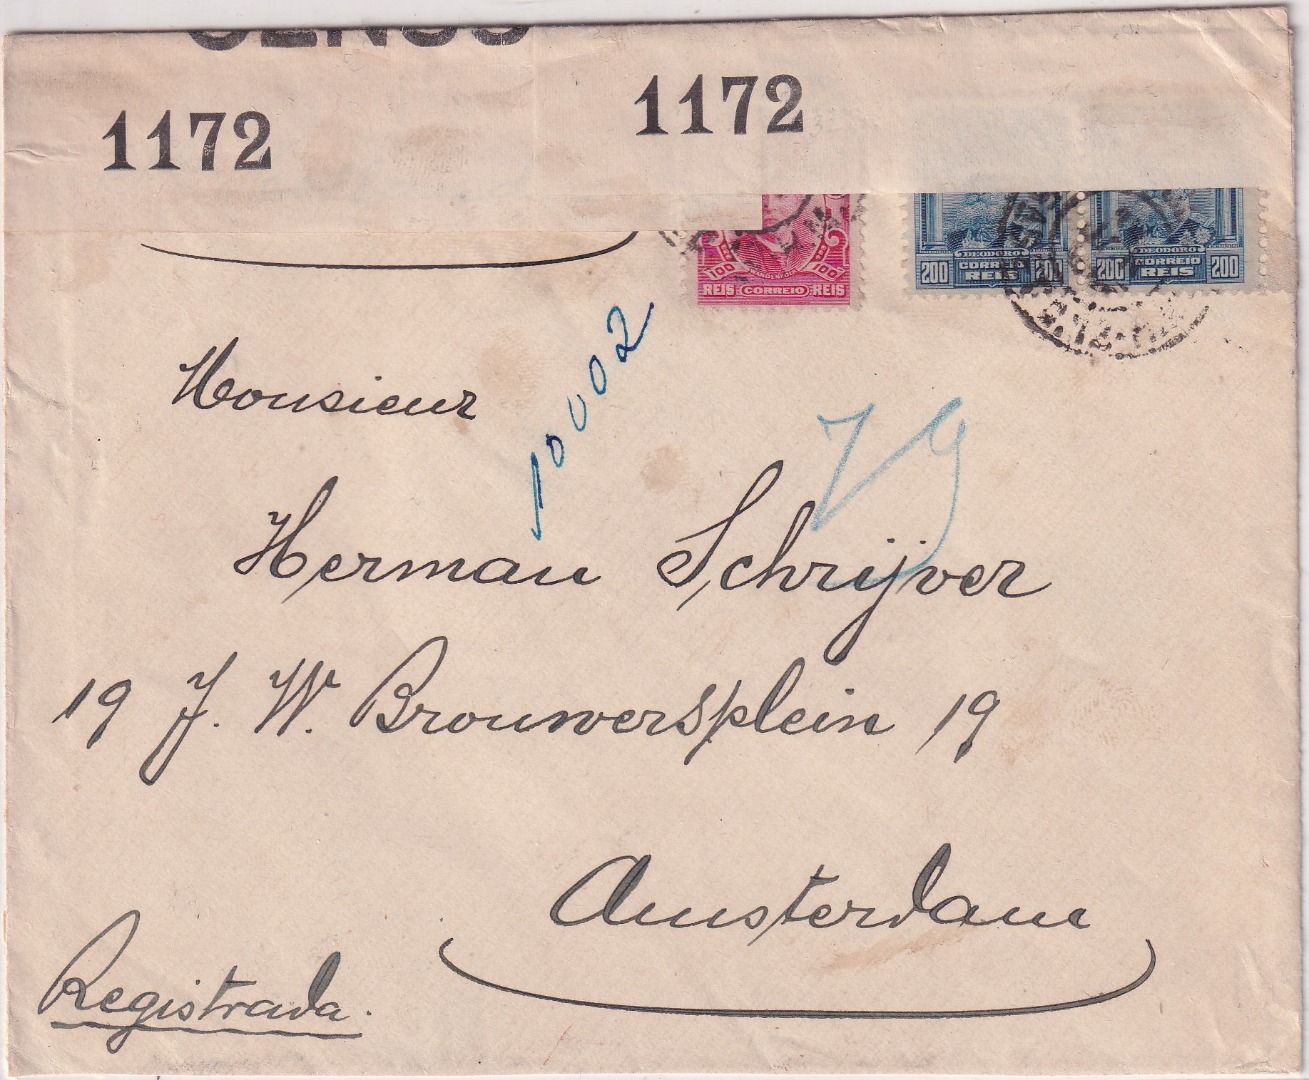 1172 1172
100 WANDENKOLK 100
REIS CORREIO REIS
DEODORO
200 CORREIO 200
REIS
DEODORO
200 CORREIO 200
REIS
10002
Monsieur
79
Herman Schrijver
19 J. W. Brouwersplein 19
Amsterdam
Registrada.